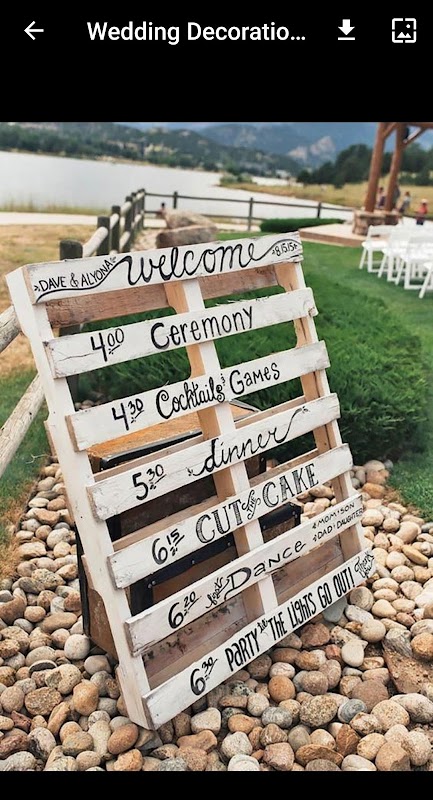 Wedding Decoratio...
DAVE & ALYONA welcome 8.15.15
4:00 Ceremony
4:30 Cocktails & Games
5:30 dinner
6:15 CUT the CAKE
6:20 Dance MOM & SON DAD & DAUGHTER
6:30 PARTY THE LIGHTS GO OUT!